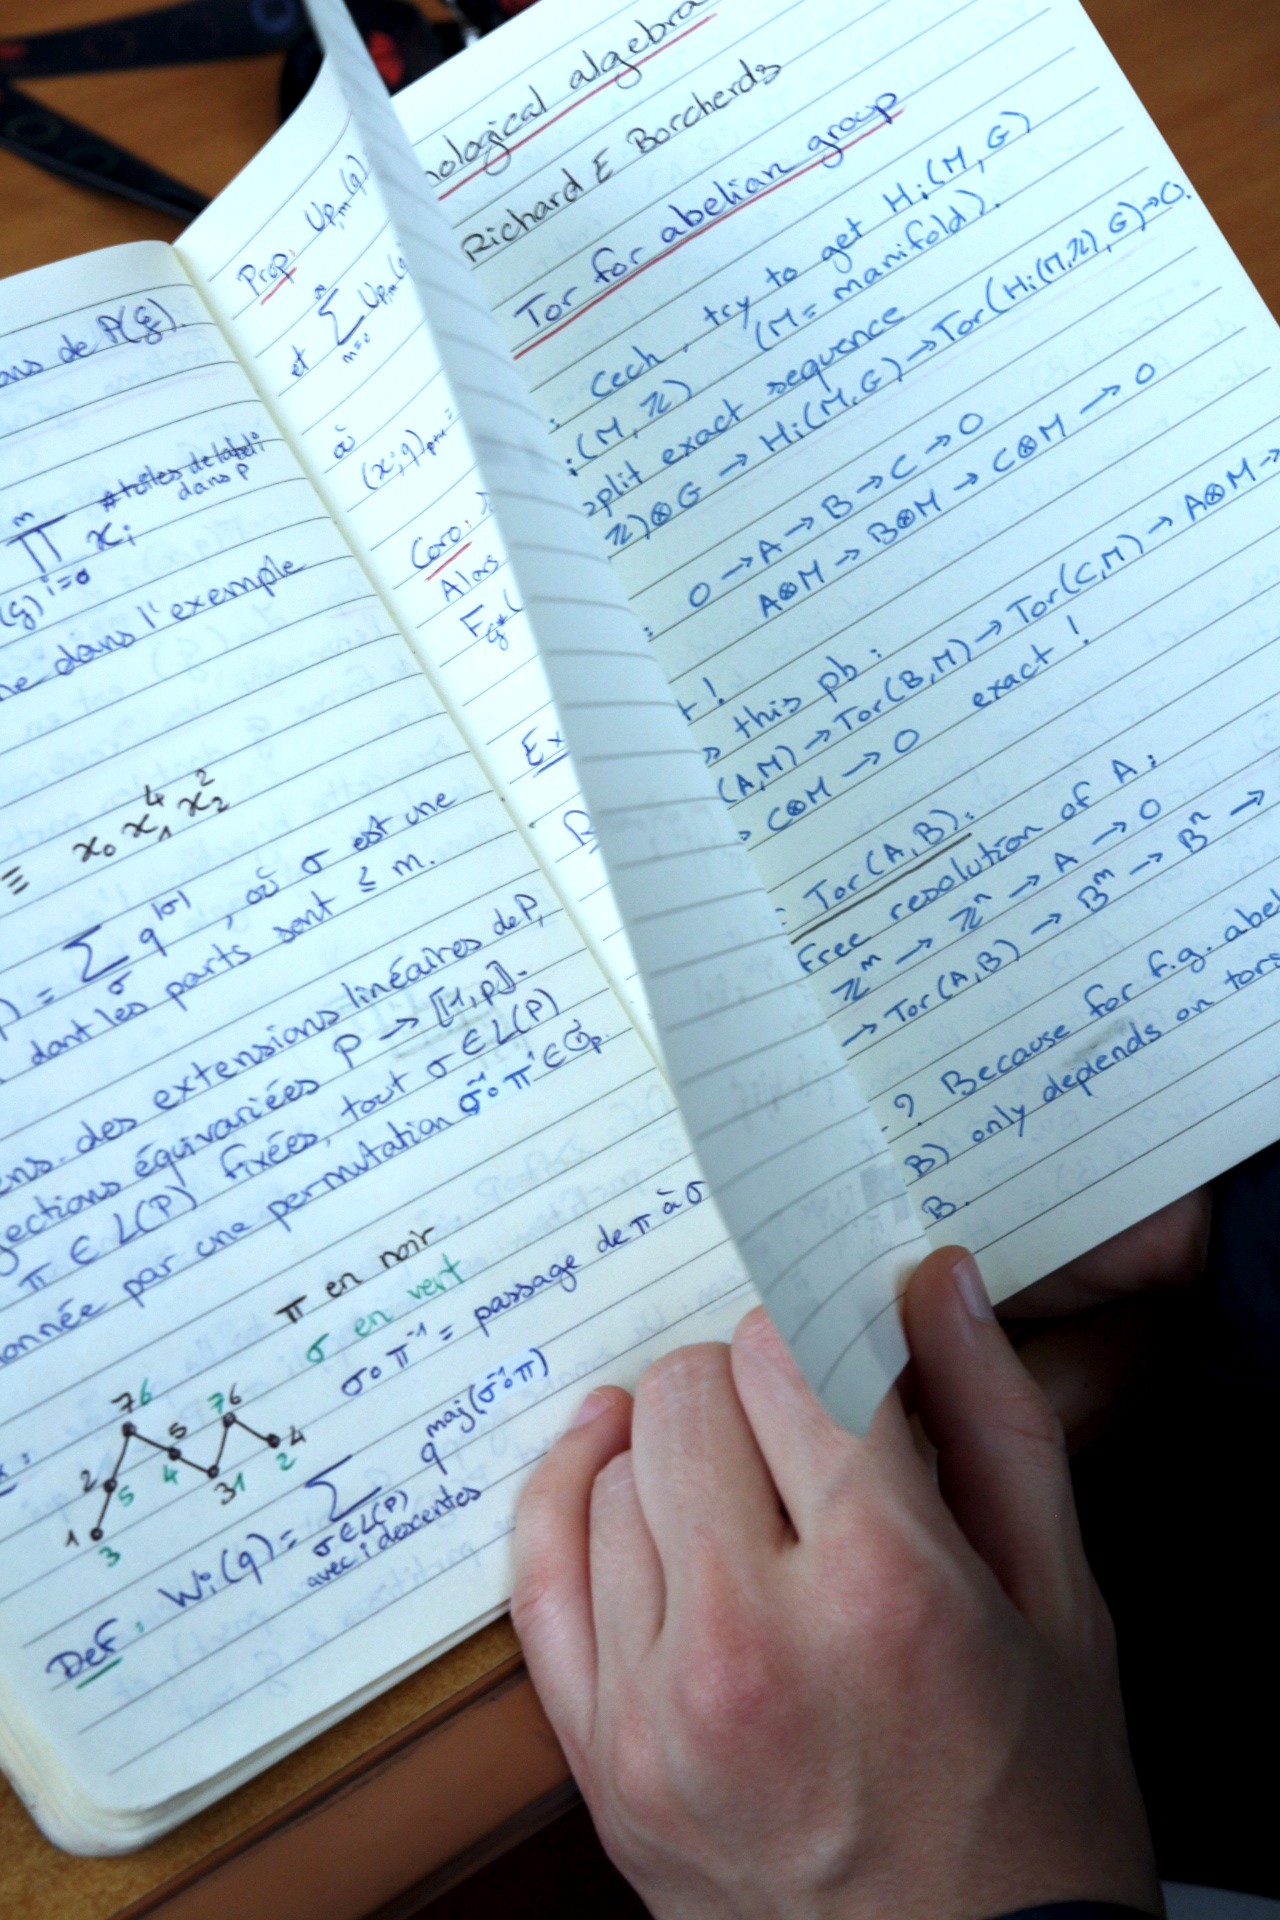 ons de P(ξ).
m # toiles de label i
∏ xᵢ dans P
(ξ) i=0
ne dans l'exemple
≡ x₀ x₁⁴ x₂²
) = ∑ q^|σ| , où σ est une
σ
dont les parts sont ≤ m.
ens. des extensions linéaires de P,
jections équivariées P → [1,p].
π ∈ L(P) fixées, tout σ ∈ L(P)
onnée par une permutation σ⁻¹∘π ∈ 𝔖p.
π en noir
σ en vert
σ∘π⁻¹ = passage de π à σ
76 76
5 4
2 5 4 31 2
1
3
Def : Wᵢ(q) = ∑ q^maj(σ⁻¹∘π)
σ∈L(P)
avec i descentes
Prop. U_{P,m}(q)
∞
et ∑ U_{P,m}(q
m=0
où
(x;q)_{p+1} =
Coro.
Alors
F_{ξ*}(
Ex
nological algebra
Richard E Borcherds
Tor for abelian group
: Cech, try to get Hᵢ(M, G)
ᵢ(M, ℤ) (M = manifold).
split exact sequence
ℤ)⊗G → Hᵢ(M,G) → Tor(Hᵢ(M,ℤ), G) → 0.
: 0 → A → B → C → 0
A⊗M → B⊗M → C⊗M → 0
t !
this pb :
(A,M) → Tor(B,M) → Tor(C,M) → A⊗M →
→ C⊗M → 0 exact !
: Tor(A,B):
Free resolution of A :
ℤᵐ → ℤⁿ → A → 0
→ Tor(A,B) → Bᵐ → Bⁿ →
? Because for f.g. abel
B) only depends on tors
B.